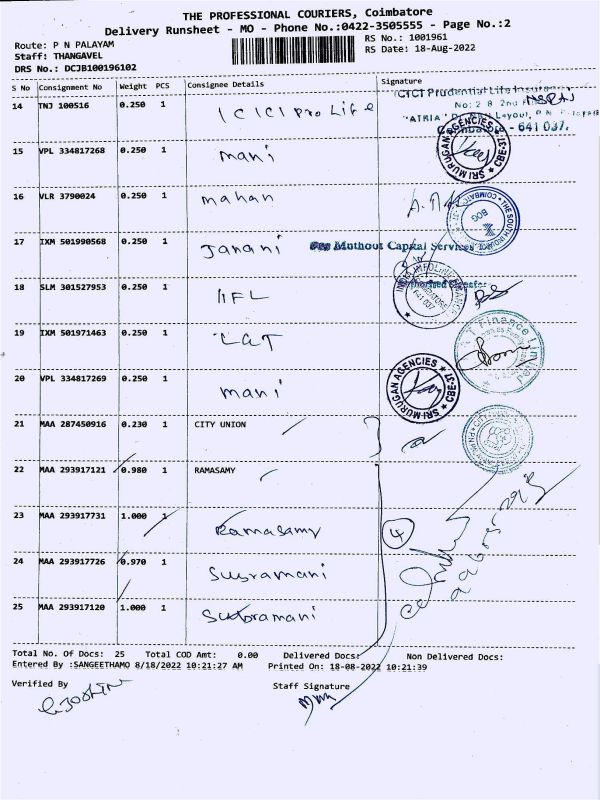 THE PROFESSIONAL COURIERS, Coimbatore
Delivery Runsheet - MO - Phone No.:0422-3505555 - Page No.:2
Route: P N PALAYAM
RS No.: 1001961
Staff: THANGAVEL
RS Date: 18-Aug-2022
DRS No.: DCJB100196102
S No Consignment No Weight PCS Consignee Details Signature
14 TNJ 100516 0.250 1 ICICI pro Life
ICICI Prudential Life Insurance
No: 2 8 2nd
"ATRIA" Layout, P N
Coimbatore - 641 037.
15 VPL 334817268 0.250 1 mani
SRI MURUGAN AGENCIES CBE-37
16 VLR 3790024 0.250 1 mahan
THE SOUTH INDIAN COIMBATORE BOG
17 IXM 501990568 0.250 1 Janani
For Muthoot Capital Services
Authorised Signatory
18 SLM 301527953 0.250 1 IIFL
19 IXM 501971463 0.250 1 L&T
L & T Finance Limited
20 VPL 334817269 0.250 1 mani
SRI MURUGAN AGENCIES CBE-37
21 MAA 287450916 0.230 1 CITY UNION
22 MAA 293917121 0.980 1 RAMASAMY
23 MAA 293917731 1.000 1 Ramasamy
4
24 MAA 293917726 0.970 1 Subramani
25 MAA 293917120 1.000 1 Subramani
Total No. Of Docs: 25 Total COD Amt: 0.00 Delivered Docs: Non Delivered Docs:
Entered By :SANGEETHAMO 8/18/2022 10:21:27 AM Printed On: 18-08-2022 10:21:39
Verified By
Staff Signature